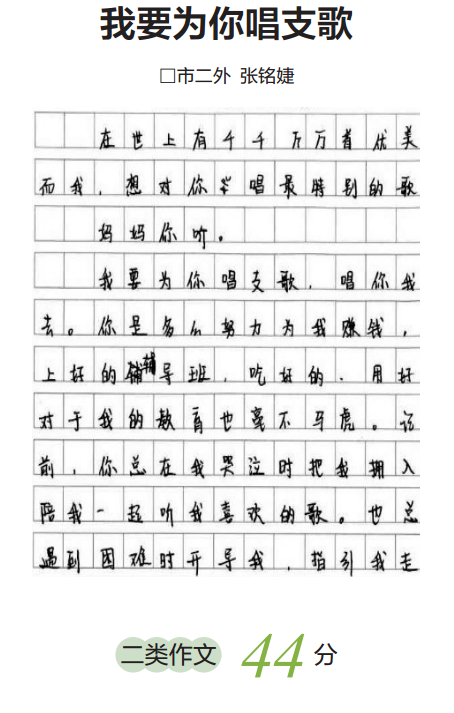 我要为你唱支歌
□市二外 张铭婕
在世上有千千万万首优美
而我,想对你唱最特别的歌
妈妈你听。
我要为你唱支歌,唱你我
去。你是多么努力为我赚钱,
上好的辅导班,吃好的、用好
对于我的教育也毫不马虎。记
前,你总在我哭泣时把我拥入
陪我一起听我喜欢的歌。也总
遇到困难时开导我,指引我走
二类作文 44 分